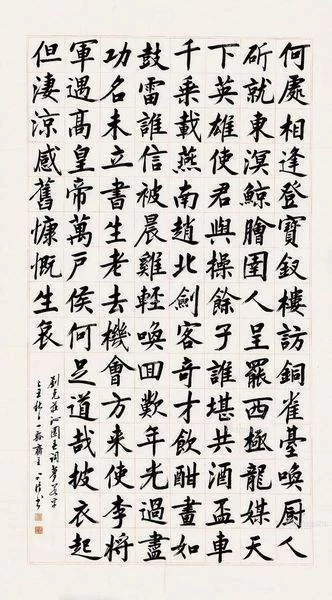 何處相逢登寶釵樓訪銅雀臺喚厨人
斫就東溟鯨膾圉人呈罷西極龍媒天
下英雄使君與操餘子誰堪共酒盃車
千乘載燕南趙北劍客奇才飲酣畫如
鼓雷誰信被晨雞輕喚回歎年光過盡
功名未立書生老去機會方來使李將
軍遇高皇帝萬戶侯何足道哉披衣起
但淒涼感舊慷慨生哀
劉克莊沁園春詞夢孚若
齋主